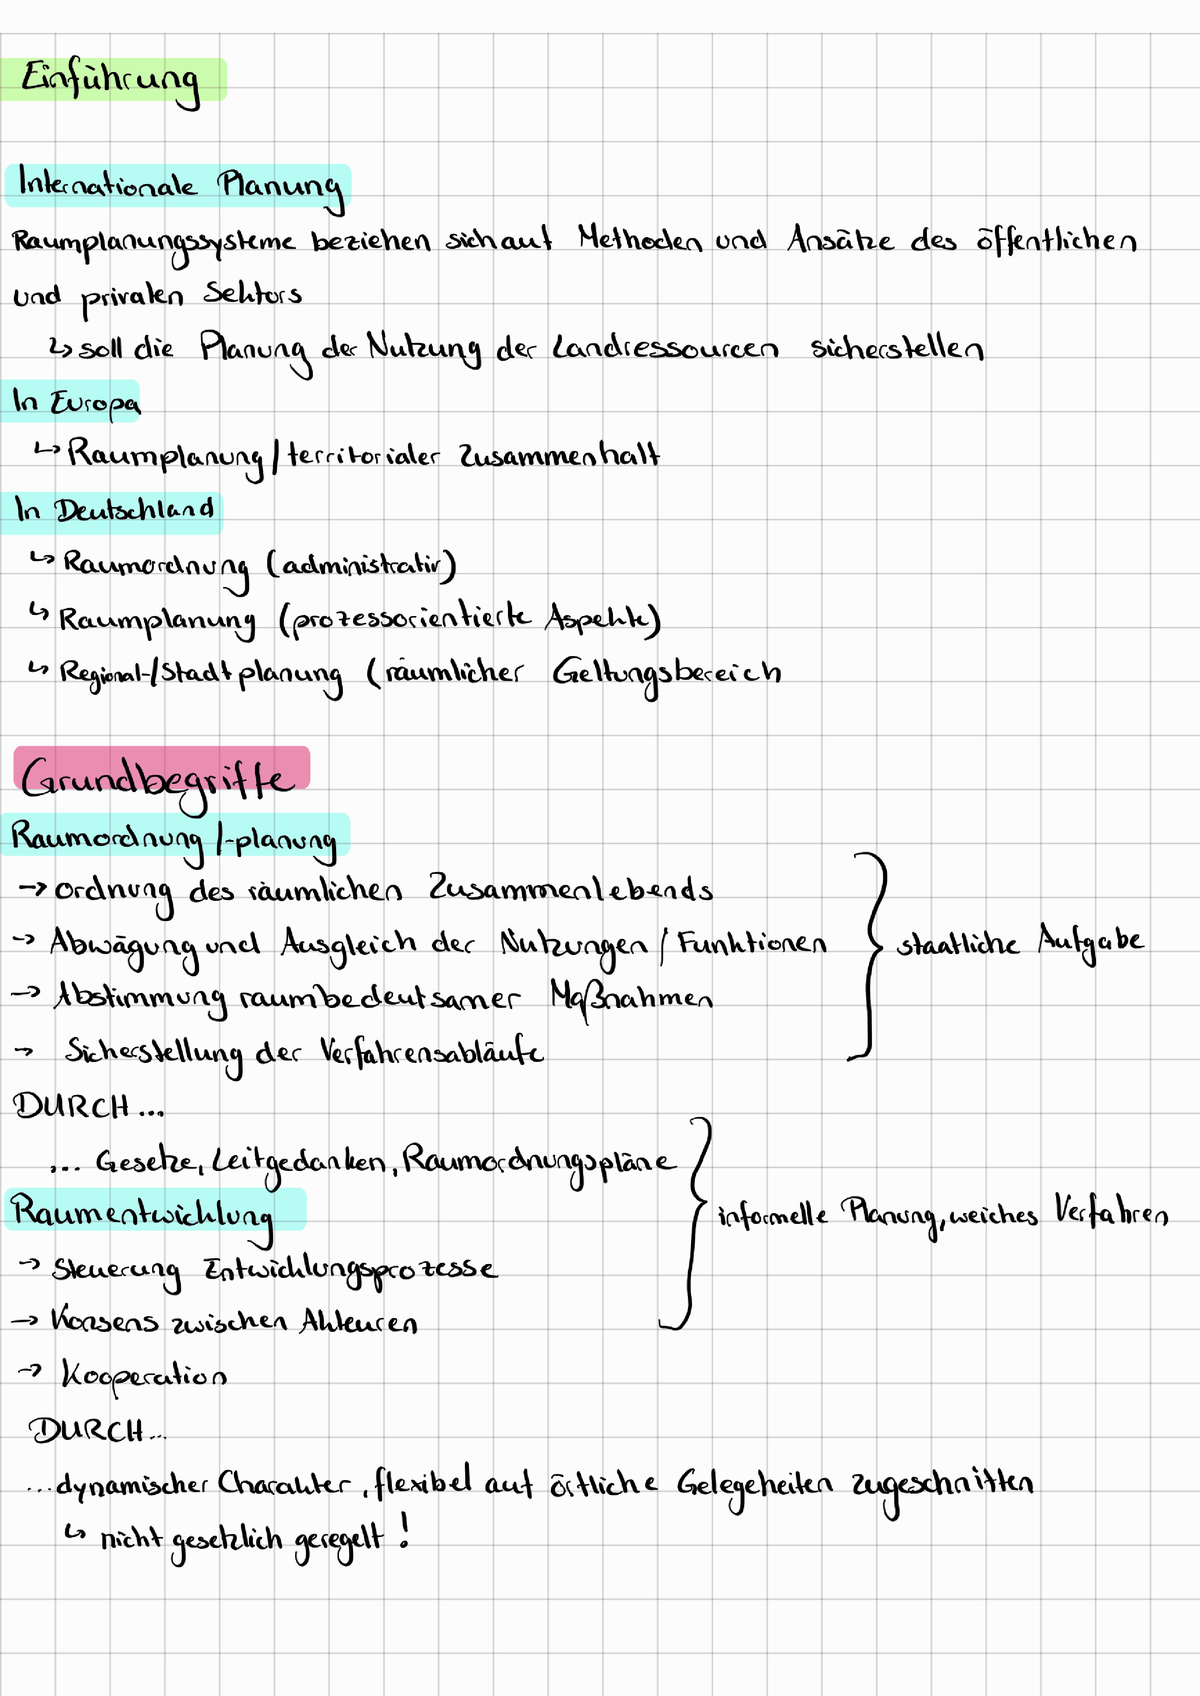 Einführung
Internationale Planung
Raumplanungssysteme beziehen sich auf Methoden und Ansätze des öffentlichen
und privaten Sektors
↳ soll die Planung der Nutzung der Landressourcen sicherstellen
In Europa
↳ Raumplanung / territorialer Zusammenhalt
In Deutschland
↳ Raumordnung (administrativ)
↳ Raumplanung (prozessorientierte Aspekte)
↳ Regional-/Stadtplanung (räumlicher Geltungsbereich
Grundbegriffe
Raumordnung /-planung
→ Ordnung des räumlichen Zusammenlebends
→ Abwägung und Ausgleich der Nutzungen / Funktionen } staatliche Aufgabe
→ Abstimmung raumbedeutsamer Maßnahmen
→ Sicherstellung der Verfahrensabläufe
DURCH...
... Gesetze, Leitgedanken, Raumordnungspläne
Raumentwicklung } informelle Planung, weiches Verfahren
→ Steuerung Entwicklungsprozesse
→ Konsens zwischen Akteuren
→ Kooperation
DURCH...
...dynamischer Charakter, flexibel auf örtliche Gelegeheiten zugeschnitten
↳ nicht gesetzlich geregelt!